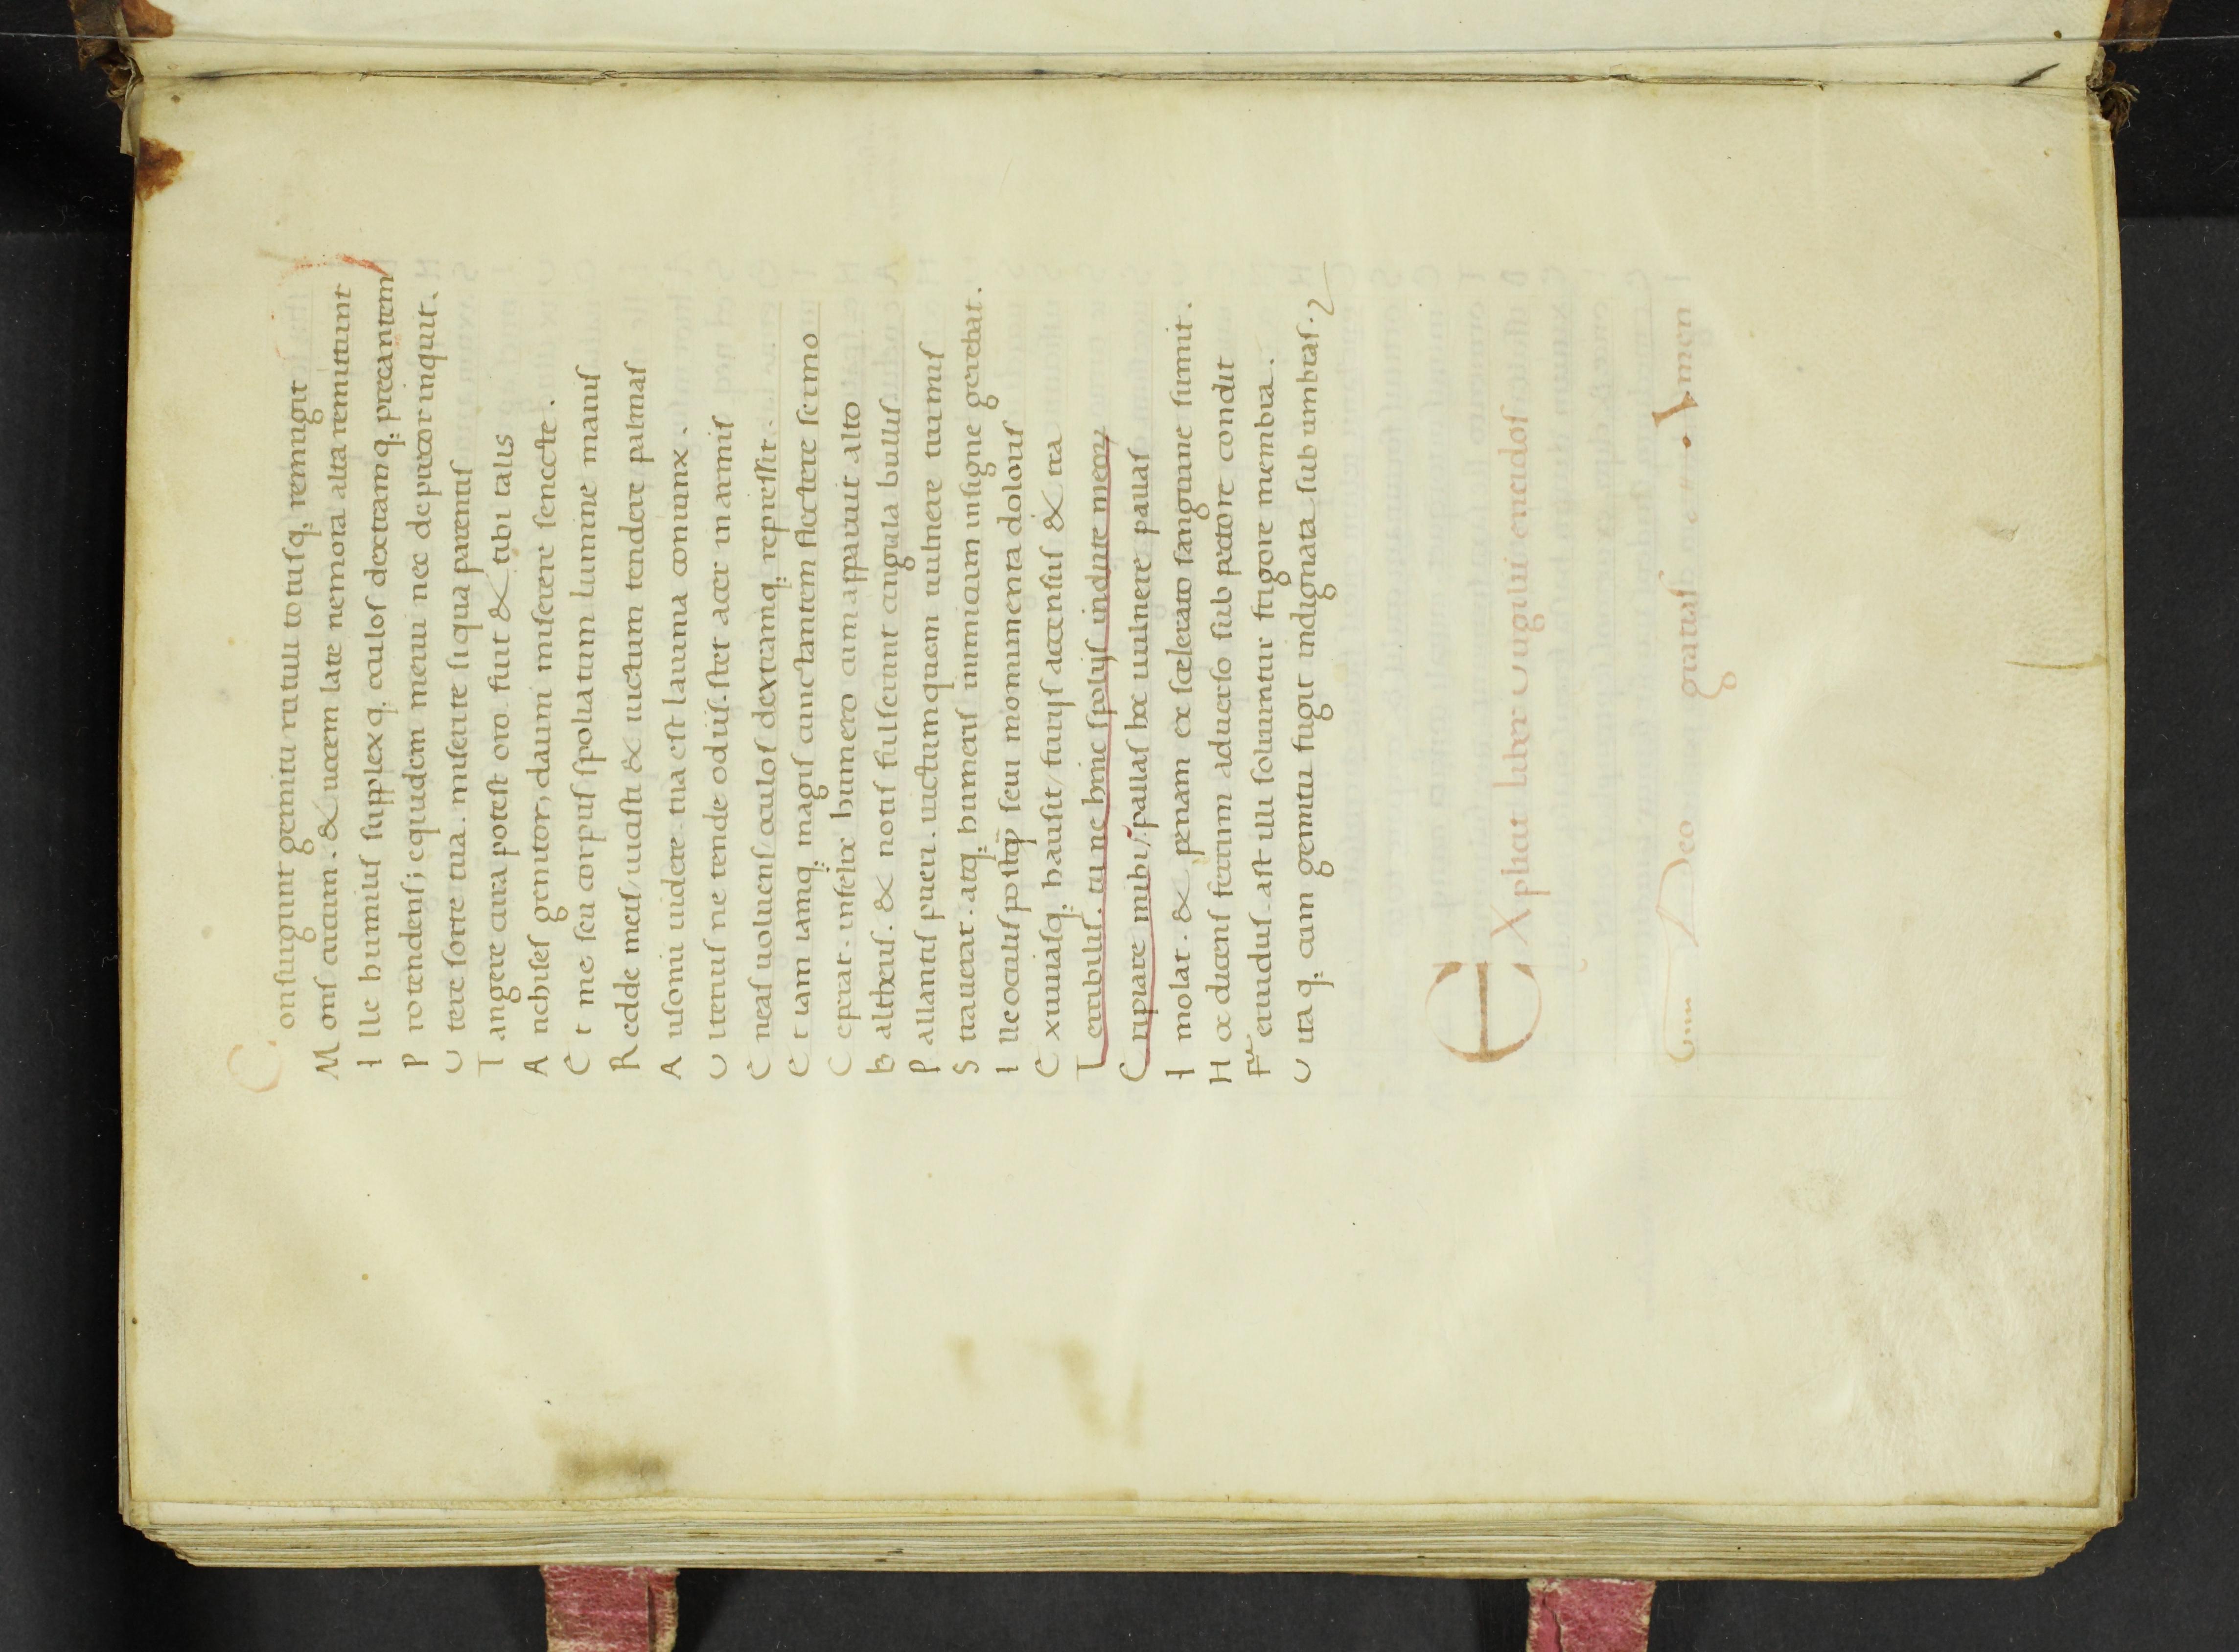 Consurgunt gemitu rutuli totusq; remugit
Mons circum. & uocem late nemora alta remittunt
Ille humius supplexq; oculos dextramq; precantem
Protendens; equidem merui nec deprecor inquit.
Utere sorte tua. miserite siqua parentis
Tangere cura potest oro fuit & tibi talis
Anchises genitor, dauni miserere senecte.
Et me seu corpus spoliatum lumine mauis
Redde meis, uicisti & uictum tendere palmas
Ausonii uidere. tua est lauinia coniunx.
Ulterius ne tende odiis. stet acer in armis
Eneas uoluens, oculos dextramq; repressit.
Et iam iamq; magis cunctantem flectere sermo
Ceperat. infelix humero cum apparuit alto
Baltheus. & notis fulserunt cingula bullis
Pallantis pueri. uictum quem uulnere turnus
Strauerat. atq; humeris inimicum insigne gerebat.
Ille oculis postq̃ seui monumenta doloris
Exuuiasq; hausit, furiis accensus & ira
Terribilis. tu ne hinc spoliis indute meoꝝ
Eripiare mihi; pallas hoc uulnere pallas
Imolat. & penam ex scelerato sanguine sumit.
Hoc dicens ferrum aduerso sub pectore condit
Feruidus. ast illi soluuntur frigore membra.
Uitaq; cum gemitu fugit indignata sub umbras.
EXplicit liber Uirgilii eneidos
Deo gratias Amen